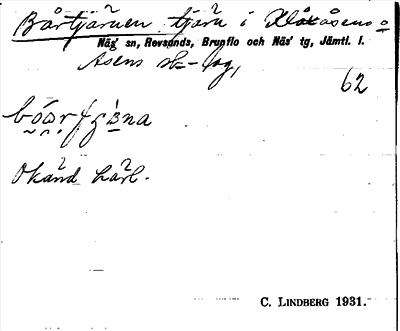 Bårtjärnen tjärn i Klåxåsens o
Näs' sn, Revsunds, Brunflo och Näs' tg, Jämtl. l.
Åsens sk-lag,
62
Okänd härl.
C. LINDBERG 1931.